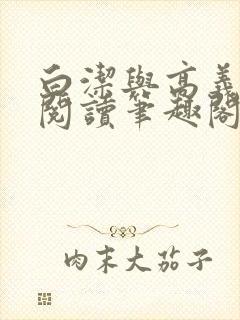 白潔與高義
閱讀筆趣閣
肉末大茄子